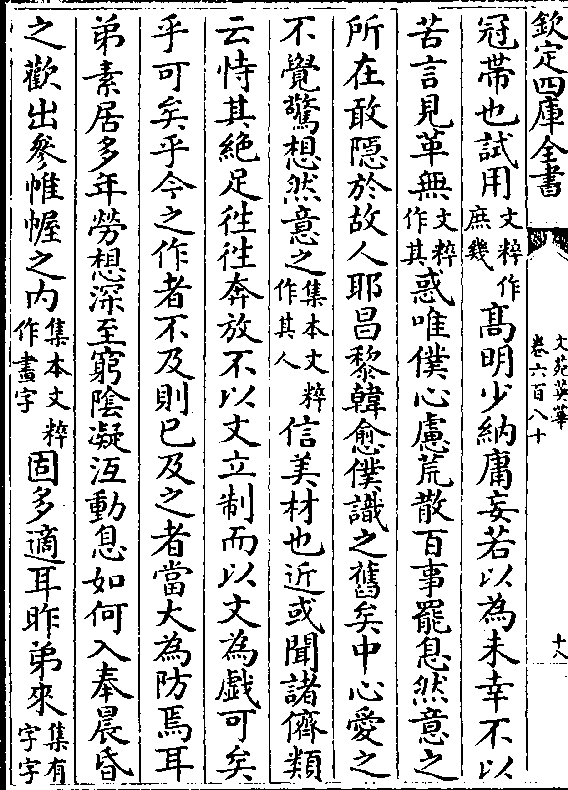 欽定四庫全書
文苑英華
卷六百八十
十八
冠帶也試用文粹作庶幾髙明少納庸妄若以為未幸不以
苦言見革無文粹作其惑唯僕心慮荒散百事罷息然意之
所在敢隱於故人耶昌黎韓愈僕識之舊矣中心愛之
不覺驚想然意之集本文粹作其人信美材也近或聞諸儕類
云恃其絶足徃徃奔放不以文立制而以文為戯可矣
乎可矣乎今之作者不及則已及之者當大為防焉耳
弟素居多年勞想深至窮陰凝沍動息如何入奉晨昏
之歡出參帷幄之内集本文粹作畫字固多適耳昨弟來集有字字